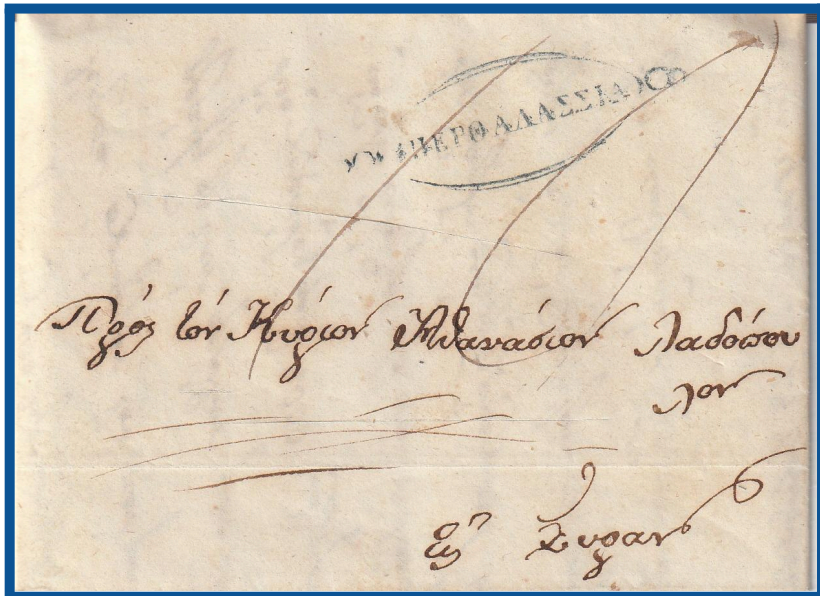 ΥΠΕΡΘΑΛΑΣΣΙΑ
Πρὸς τὸν Κύριον Ἀθανάσιον Λαδόπου
λον
Εἰς Σύραν